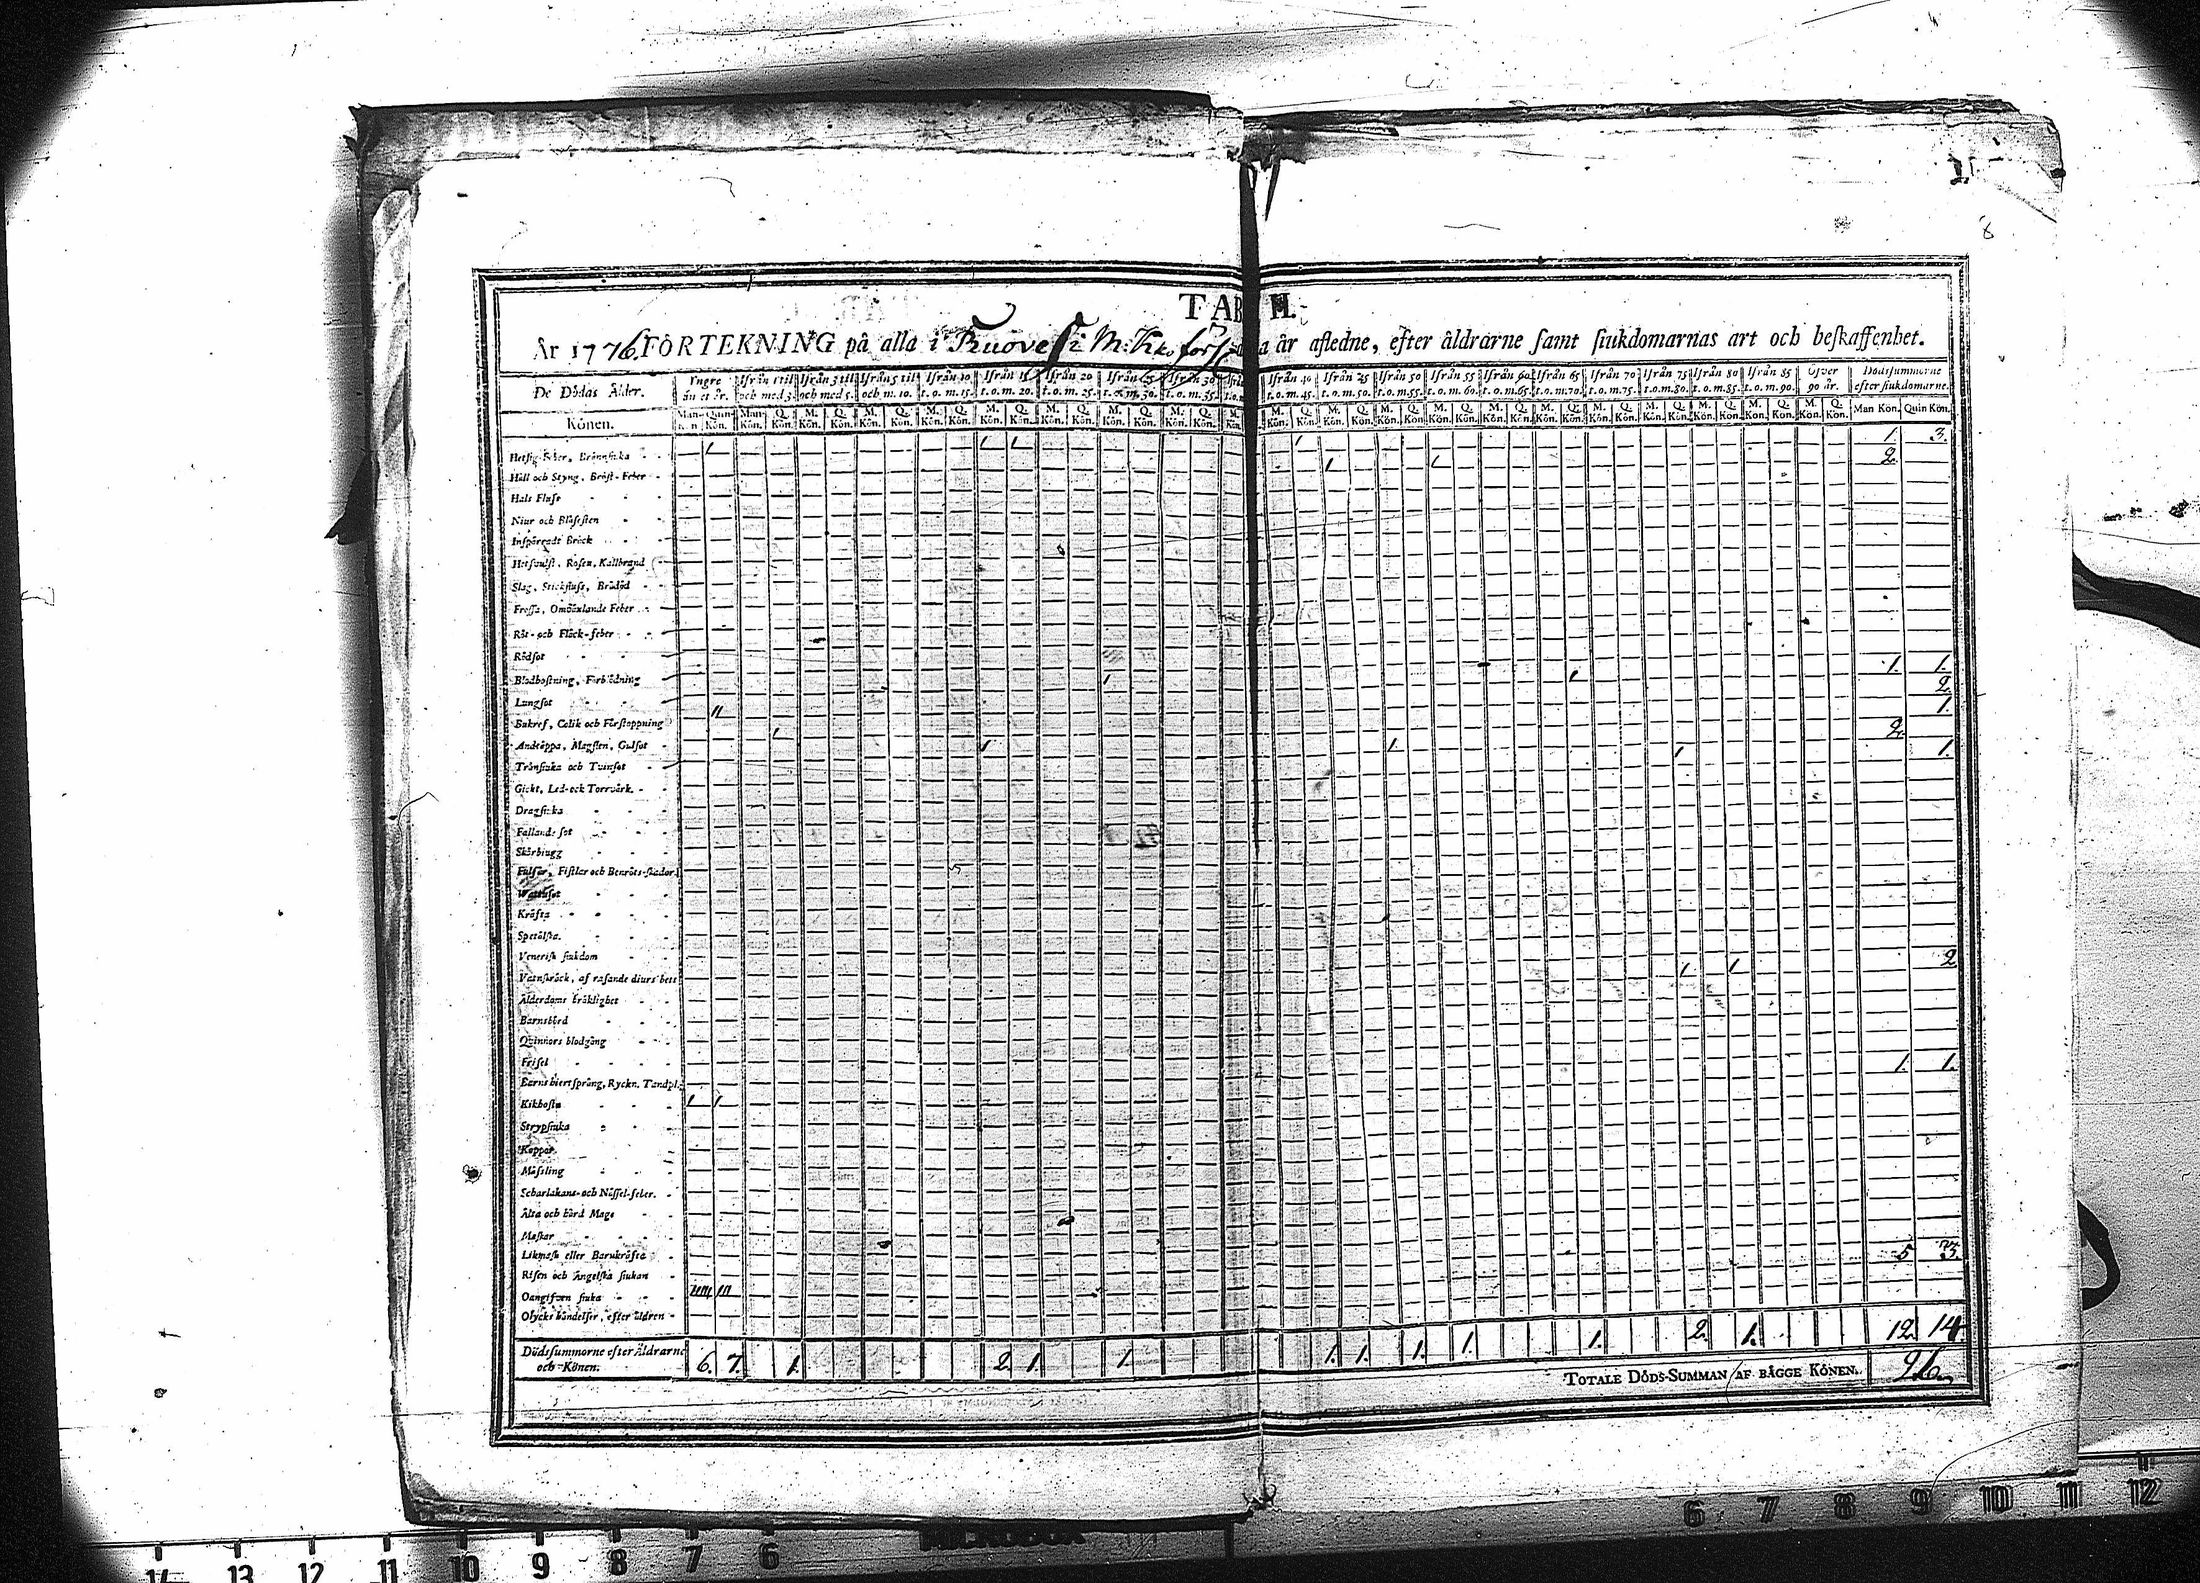 TAB II.
År 1776. FÖRTEKNING på alla i Ruovesi M: Kko förs: år afledne, efter åldrarne samt siukdomarnas art och beskaffenhet.
De Dödas Ålder. Yngre än et år. Ifrån 1 til och med 3. Ifrån 3 til och med 5. Ifrån 5 til och m. 10. Ifrån 10 t. o. m. 15. Ifrån 15 t. o. m. 20. Ifrån 20 t. o. m. 25. Ifrån 25 t. o. m. 30. Ifrån 30 t. o. m. 35. Ifrån 40 t. o. m. 45. Ifrån 45 t. o. m. 50. Ifrån 50 t. o. m. 55. Ifrån 55 t. o. m. 60. Ifrån 60 t. o. m. 65. Ifrån 65 t. o. m. 70. Ifrån 70 t. o. m. 75. Ifrån 75 t. o. m. 80. Ifrån 80 t. o. m. 85. Ifrån 85 t. o. m. 90. Öfver 90 år. Dödssummorne efter siukdomarne.
Könen. Man Kön. Quin Kön.
Hetsig Feber, Brännsiuka 1 1 1 1 1. 3.
Håll och Styng, Bröst-Feber 1 1 2
Hals Fluss
Niur och Blåsesten
Inspärradt Bråck
Hetsvulst, Rosen, Kallbrand
Slag, Stickfluss, Brådöd
Frossa, Omväxlande Feber
Röt- och Fläck-feber
Rödsot
Blodhostning, Förblödning 1 1 1. 1.
Lungsot 11 2.
Bukref, Colik och Förstoppning 1 1.
Andtäppa, Magsten, Gulsot 1 1 2.
Trånsiuka och Tvinsot 1 1.
Gickt, Led- och Torrvärk.
Dragsiuka
Fallande sot
Skörbiugg
Fulsår, Fistlar och Benröts-skador
Wattusot
Kräfta
Spetälska.
Venerisk siukdom
Vatnskräck, af rasande diurs bett
Ålderdoms bräklighet 1 1 2
Barnsbörd
Qvinnors blodgång
Frisel
Barns hiertsprång, Ryckn. Tandpl.
Kikhosta 1 1 1. 1.
Strypsiuka
Koppor
Mässling
Scharlakans- och Nässel-feber.
Älta och hård Mage
Maskar
Likmask eller Barnkräfta
Risen och Ängelska siukan
Oangifven siuka 11111 111 5 3.
Olycks händelser, efter åldren
Dödssummorne efter Åldrarne och Könen. 6. 7. 1. 2. 1. 1. 1. 1. 1. 1. 1. 2. 1. 12. 14.
TOTALE DÖDS-SUMMAN AF BÄGGE KÖNEN. 26.
14 13 12 11 10 9 8 7 6
6 7 8 9 10 11 12